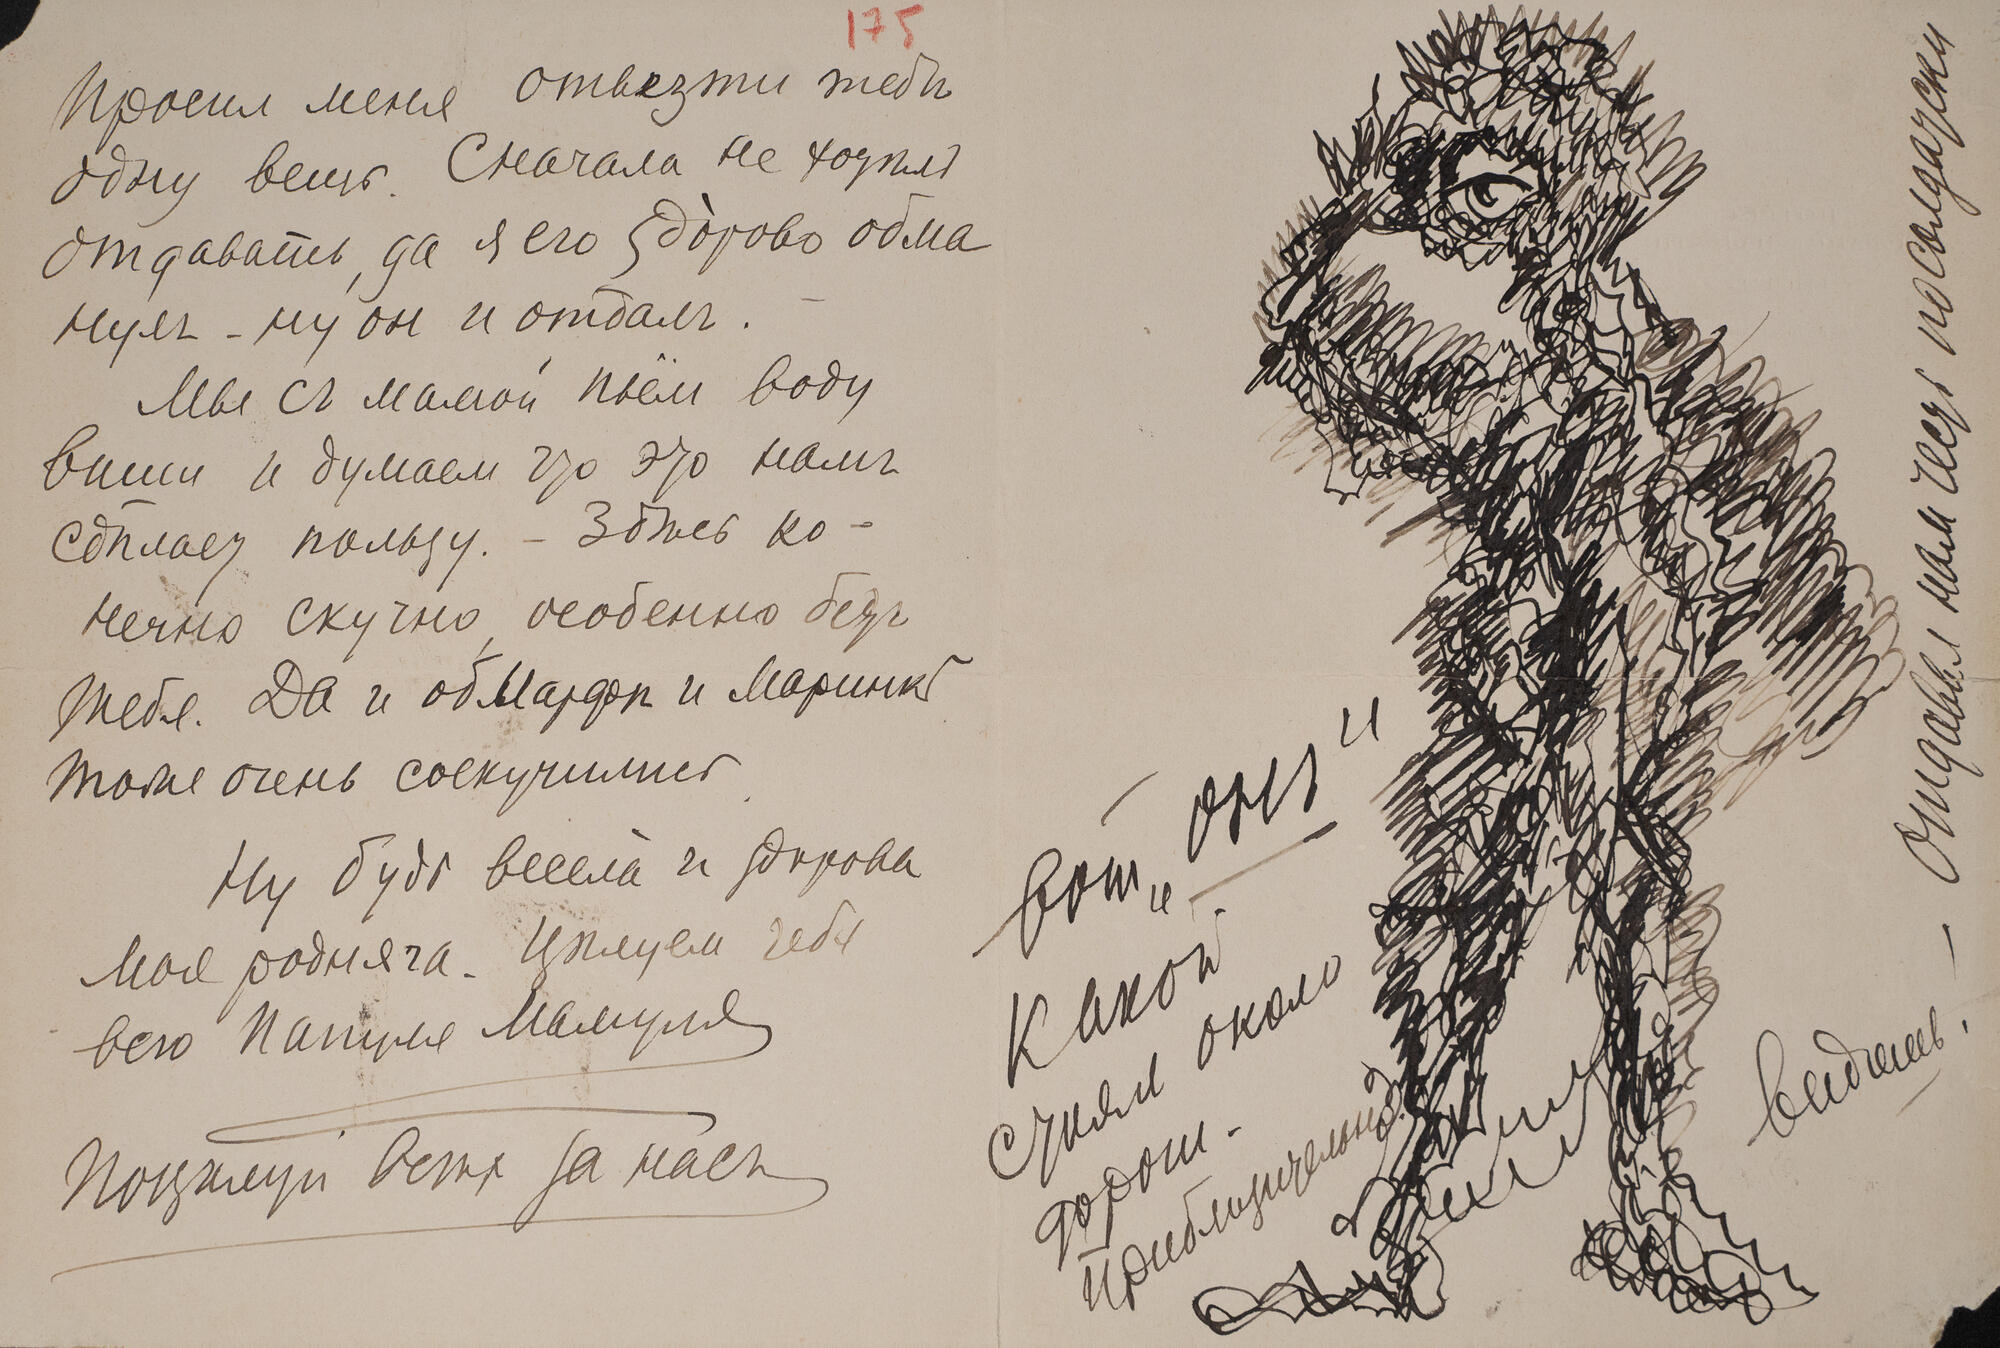 175
просил меня отвезти тебѣ
одну вещь. Сначала не хотѣлъ
отдавать, да я его здорово обма
нулъ - ну он и отдалъ. -
Мы съ мамой пьём воду
виши и думаем что это намъ
сдѣлает пользу. - Здѣсь ко -
нечно скучно, особенно безъ
тебя. Да и об Марфѣ и Маринкѣ
тоже очень соскучились
Ну будь весела и здорова
моя родняга. Цѣлуем тебя
всю Папуля Мамуля
Поцѣлуй Ветя за насъ
вот „онъ"
какой
стоял около
дорог.
приблизительно
Отдавал нам честь посолдатски -
видишь.